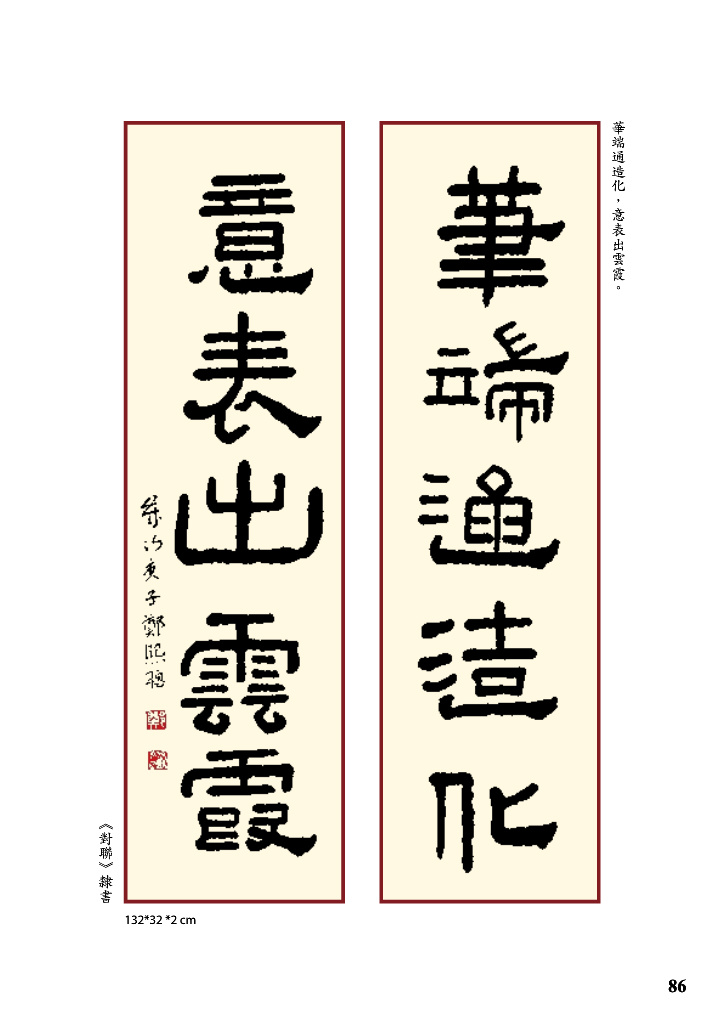 華端通造化，意表出雲霞。
筆端通造化
意表出雲霞
歲次庚子鄭熙
《對聯》隸書
132*32 *2 cm
86